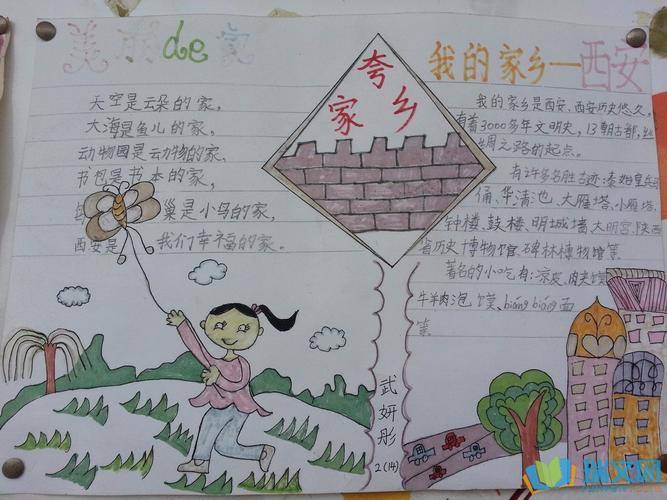 美丽de家
天空是云朵的家,
大海是鱼儿的家,
动物园是云动物的家,
书包是书本的家,
巢是小鸟的家,
西安是我们幸福的家。
夸
家 乡
我的家乡—西安
我的家乡是西安,西安历史悠久,
有着3000多年文明史,13朝古都,丝
绸之路的起点。
有许多名胜古迹:秦始皇兵马
俑、华清池、大雁塔、小雁塔、
钟楼、鼓楼、明城墙、大明宫、陕西
省历史博物馆、碑林博物馆等。
著名的小吃有:凉皮、肉夹馍、
牛羊肉泡馍、biángbiáng面
等
武妍彤
2(14)